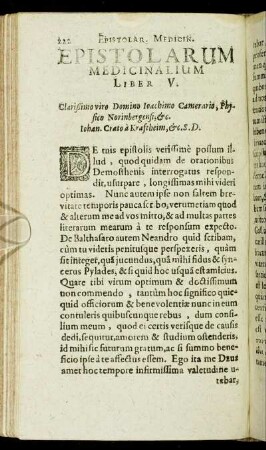 222 EPISTOLAR. MEDICIN.
EPISTOLARUM
MEDICINALIUM
LIBER V.
Clarissimo viro Domino Ioachimo Camerario, Phy-
sico Norinbergensi, &c.
Iohan. Crato à Kraftheim, &c. S. D.
DE tuis epistolis verissimè possum il-
lud, quod quidam de orationibus
Demosthenis interrogatus respon-
dit, usurpare, longissimas mihi videri
optimas. Nunc autem ipse non saltem bre-
vitate temporis pauca scribo, verumetiam quod
& alterum me ad vos mitto, & ad multas partes
literarum mearum à te responsum expecto.
De Balthasaro autem Neandro quid scribam,
cùm tu videris penitusque perspexeris, quàm
sit integer, quá jucundus, quā mihi fidus & syn-
cerus Pylades, & si quid hoc usquā est amicius.
Quare tibi virum optimum & doctissimum
non commendo, tantùm hoc significo quic-
quid officiorum & benevolentiæ nunc in eum
contuleris quibuscunque rebus, dum consi-
lium meum, quod ei certis verisque de causis
dedi, sequitur, amorem & studium ostenderis,
id mihi sic futurum gratum, ac si summo bene-
ficio ipse à te affectus essem. Ego ita me Deus
amet hoc tempore infirmissima valetudine u-
tebar,